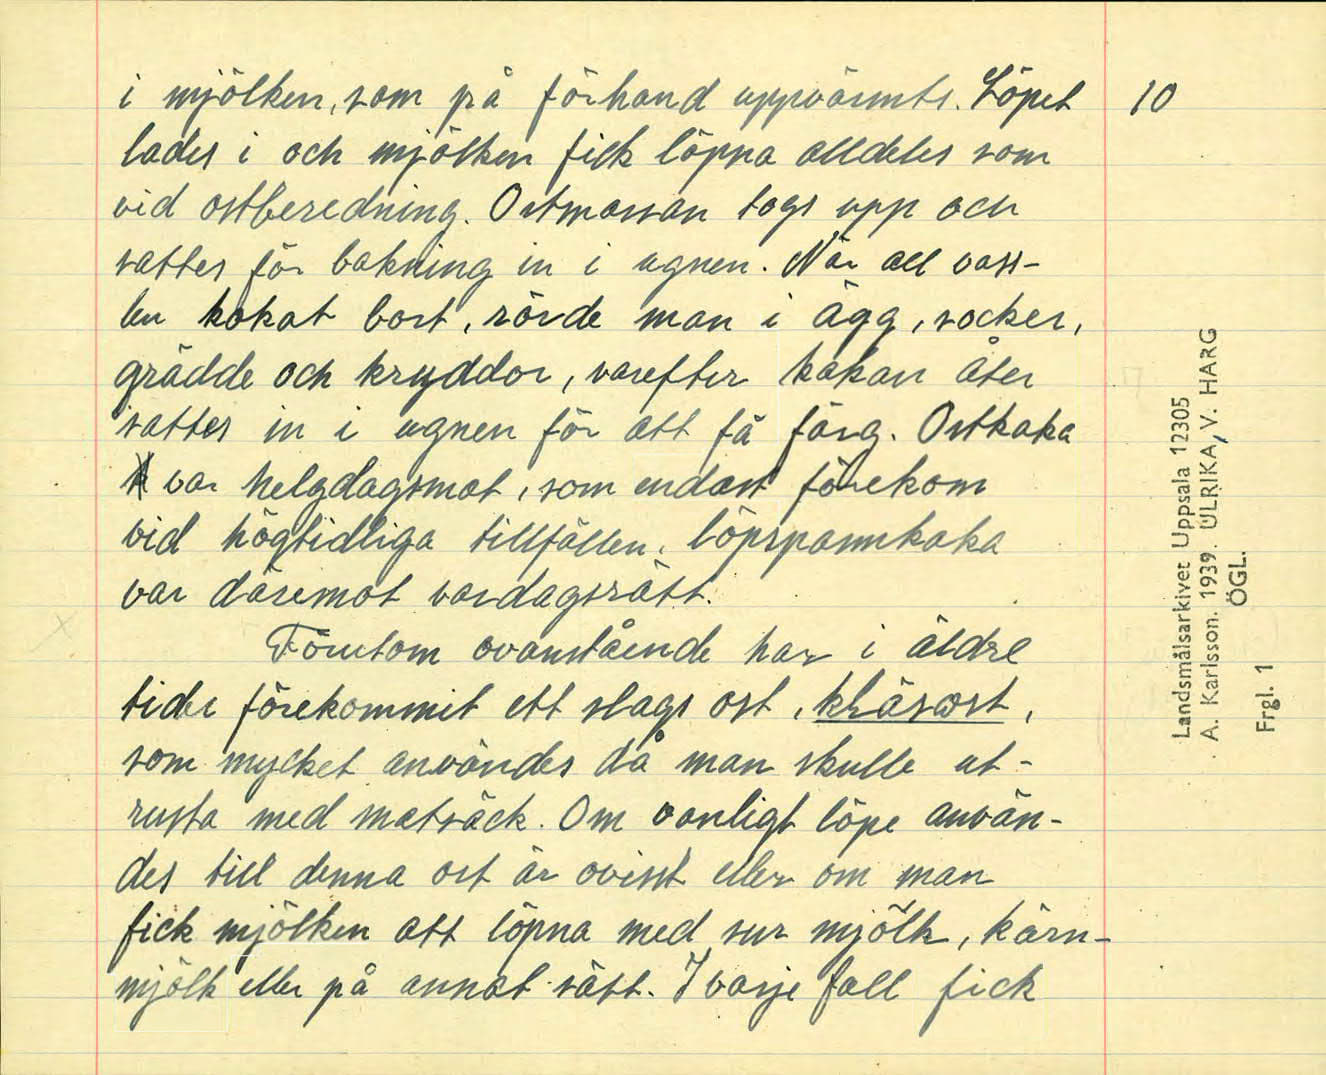 i mjölken, som på förhand uppvärmts. Löpet
lades i och mjölken fick löpna alldeles som
vid ostberedning. Ostmassan togs upp och
sattes för bakning in i ugnen. När all vass-
len kokat bort, rörde man i ägg, socker,
grädde och kryddor, varefter kakan åter
sattes in i ugnen för att få färg. Ostkaka
var helgdagsmat, som endast förekom
vid högtidliga tillfällen, löpspannkaka
var däremot vardagsrätt.
Förutom ovanstående har i äldre
tider förekommit ett slags ost,
som mycket användes då man skulle ut-
rusta med matsäck. Om vanligt löpe använ-
des till denna ost är ovisst eller om man
fick mjölken att löpna med sur mjölk, kärn-
mjölk eller på annat sätt. I varje fall fick
10
Landsmålsarkivet Uppsala 12305
A. Karlsson. 1939. ULRIKA, V. HARG
ÖGL.
Frgl. 1